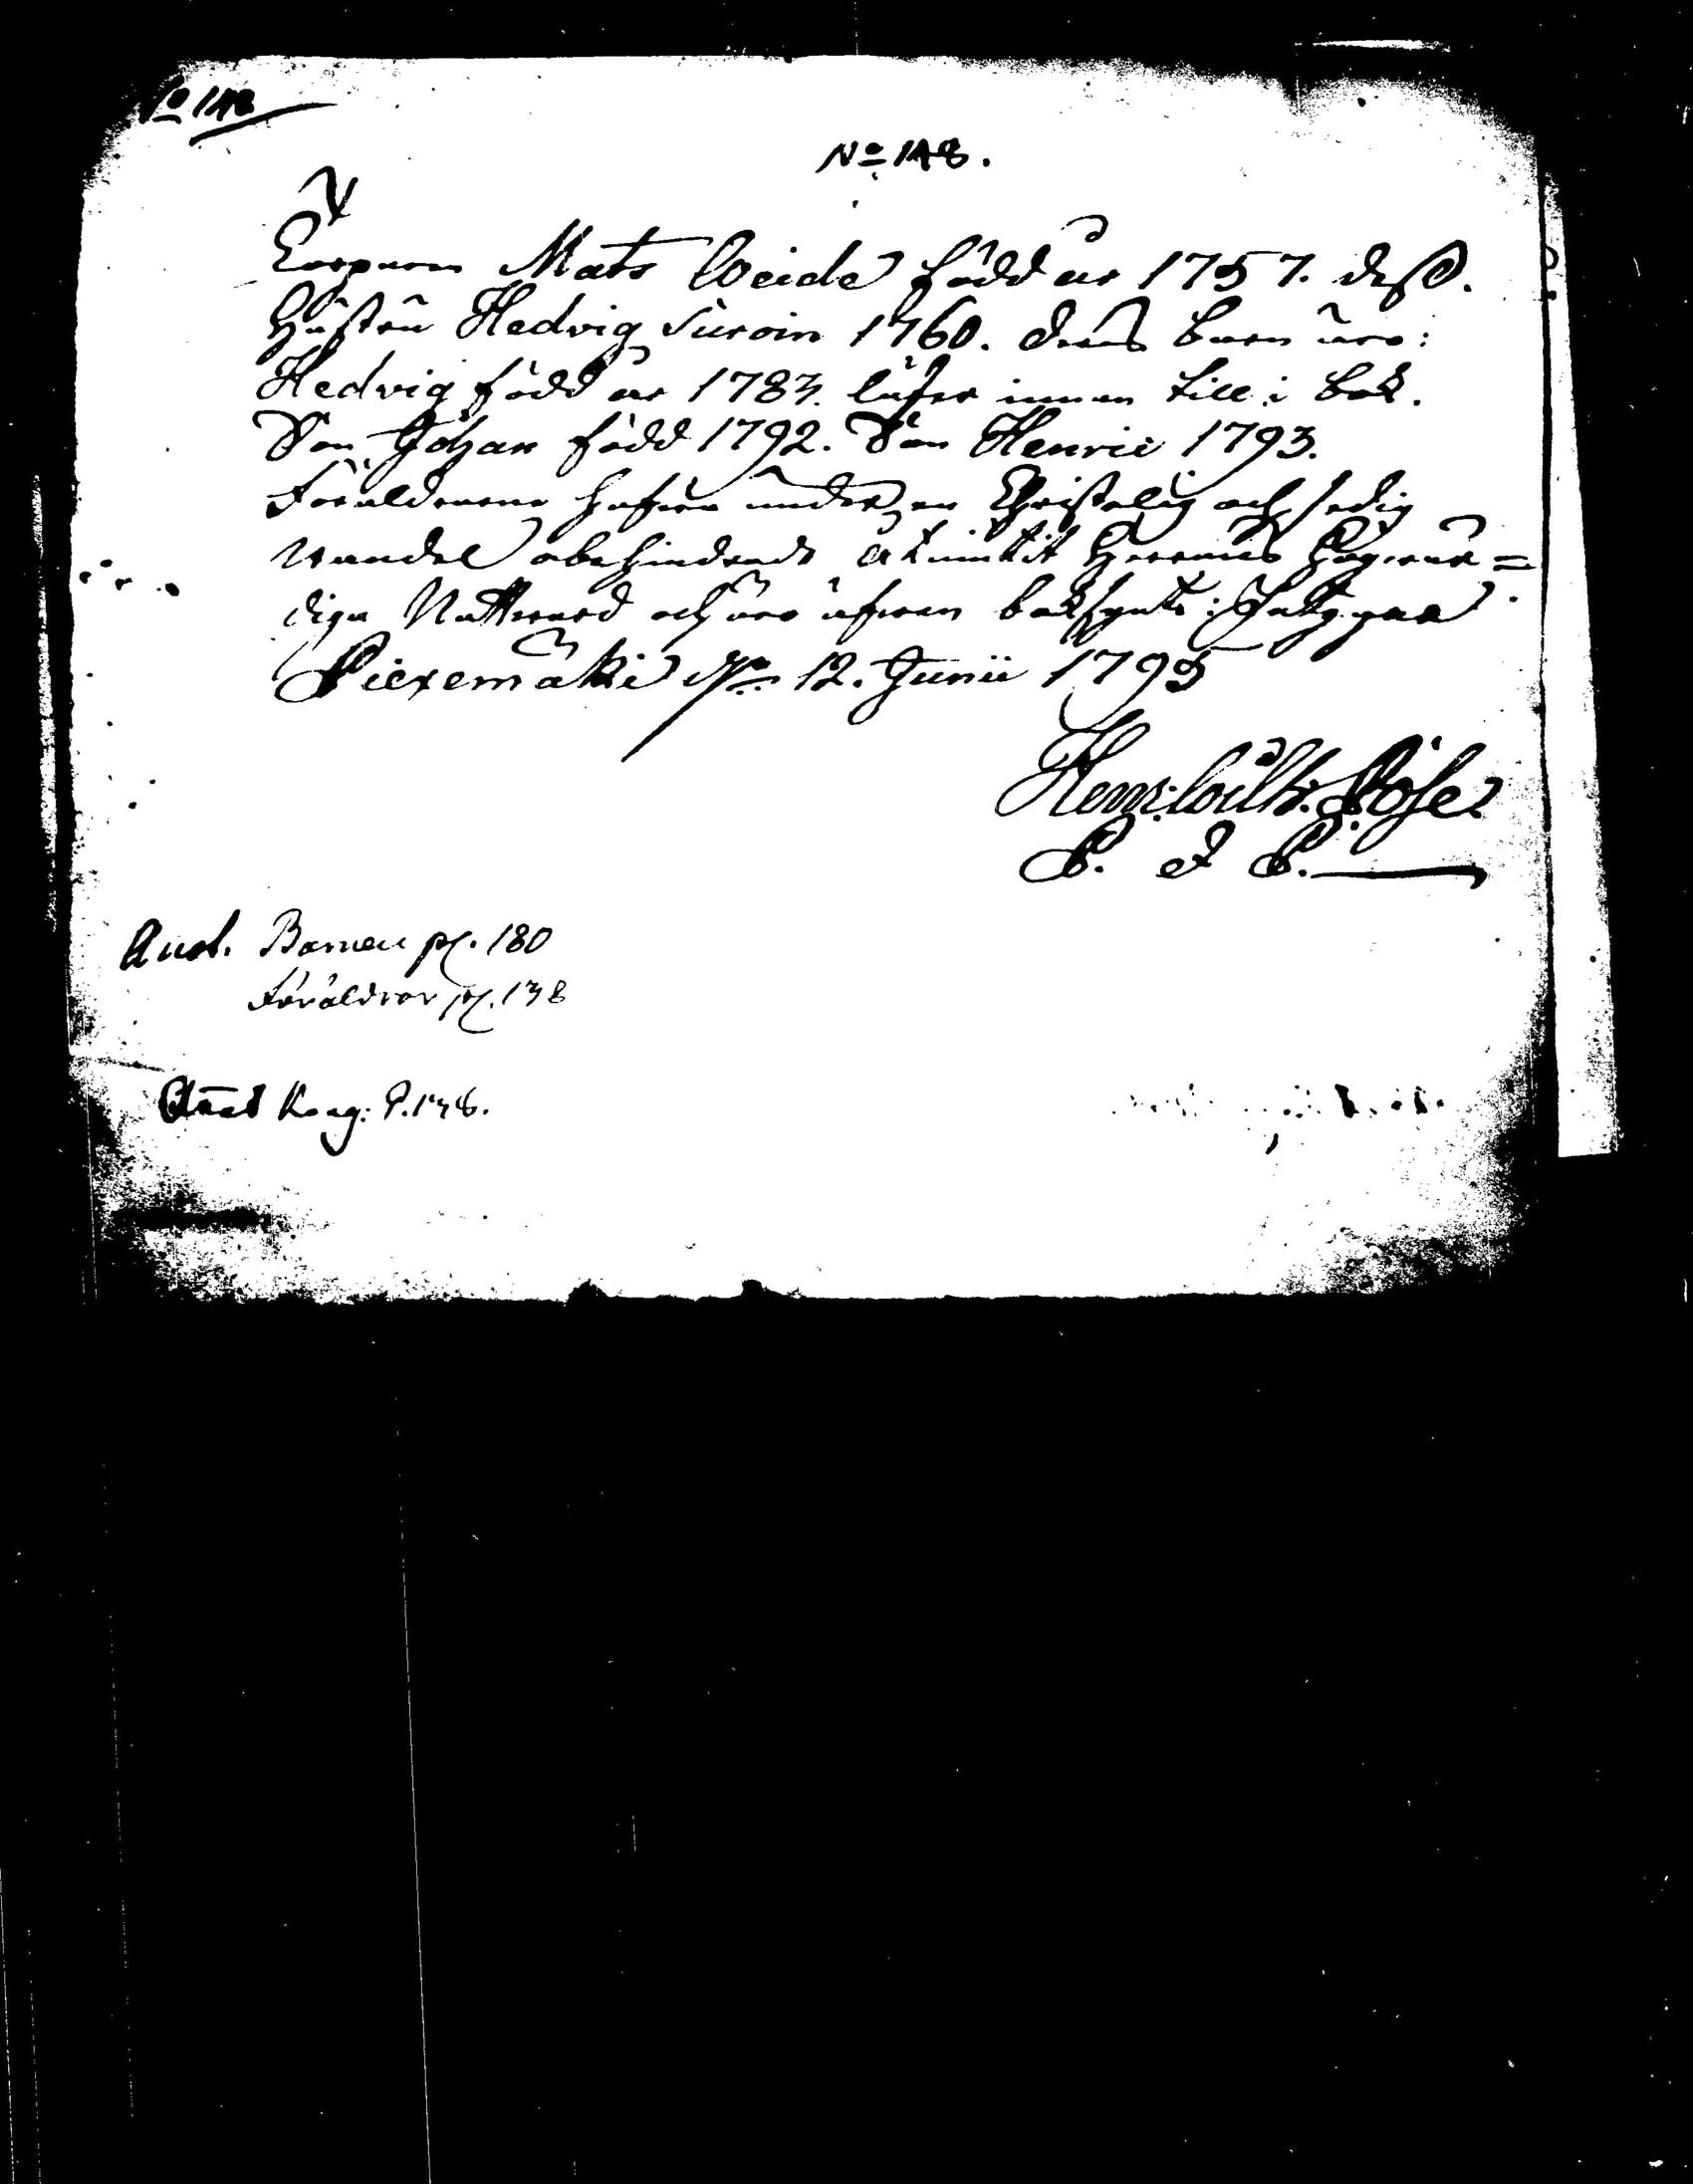 No 148
No 148.
Corporn Mats Weide född år 1757. dess
Hustru Hedvig Suroin 1760. deras barn äro:
Hedvig född år 1783. läser innan till i bok.
Son Johan född 1792. Son Henric 1793.
Föräldrarne hafwa under en Christelig och sedig
wandel obehindrade åtniutit Herrans Högwär=
diga Nattward och äro äfwen
Piexemäki d. 12. Junii 1795
Henr:
P. et P.
And. Barnen pg. 180
Föräldrar pg. 138
Kong: P. 138.